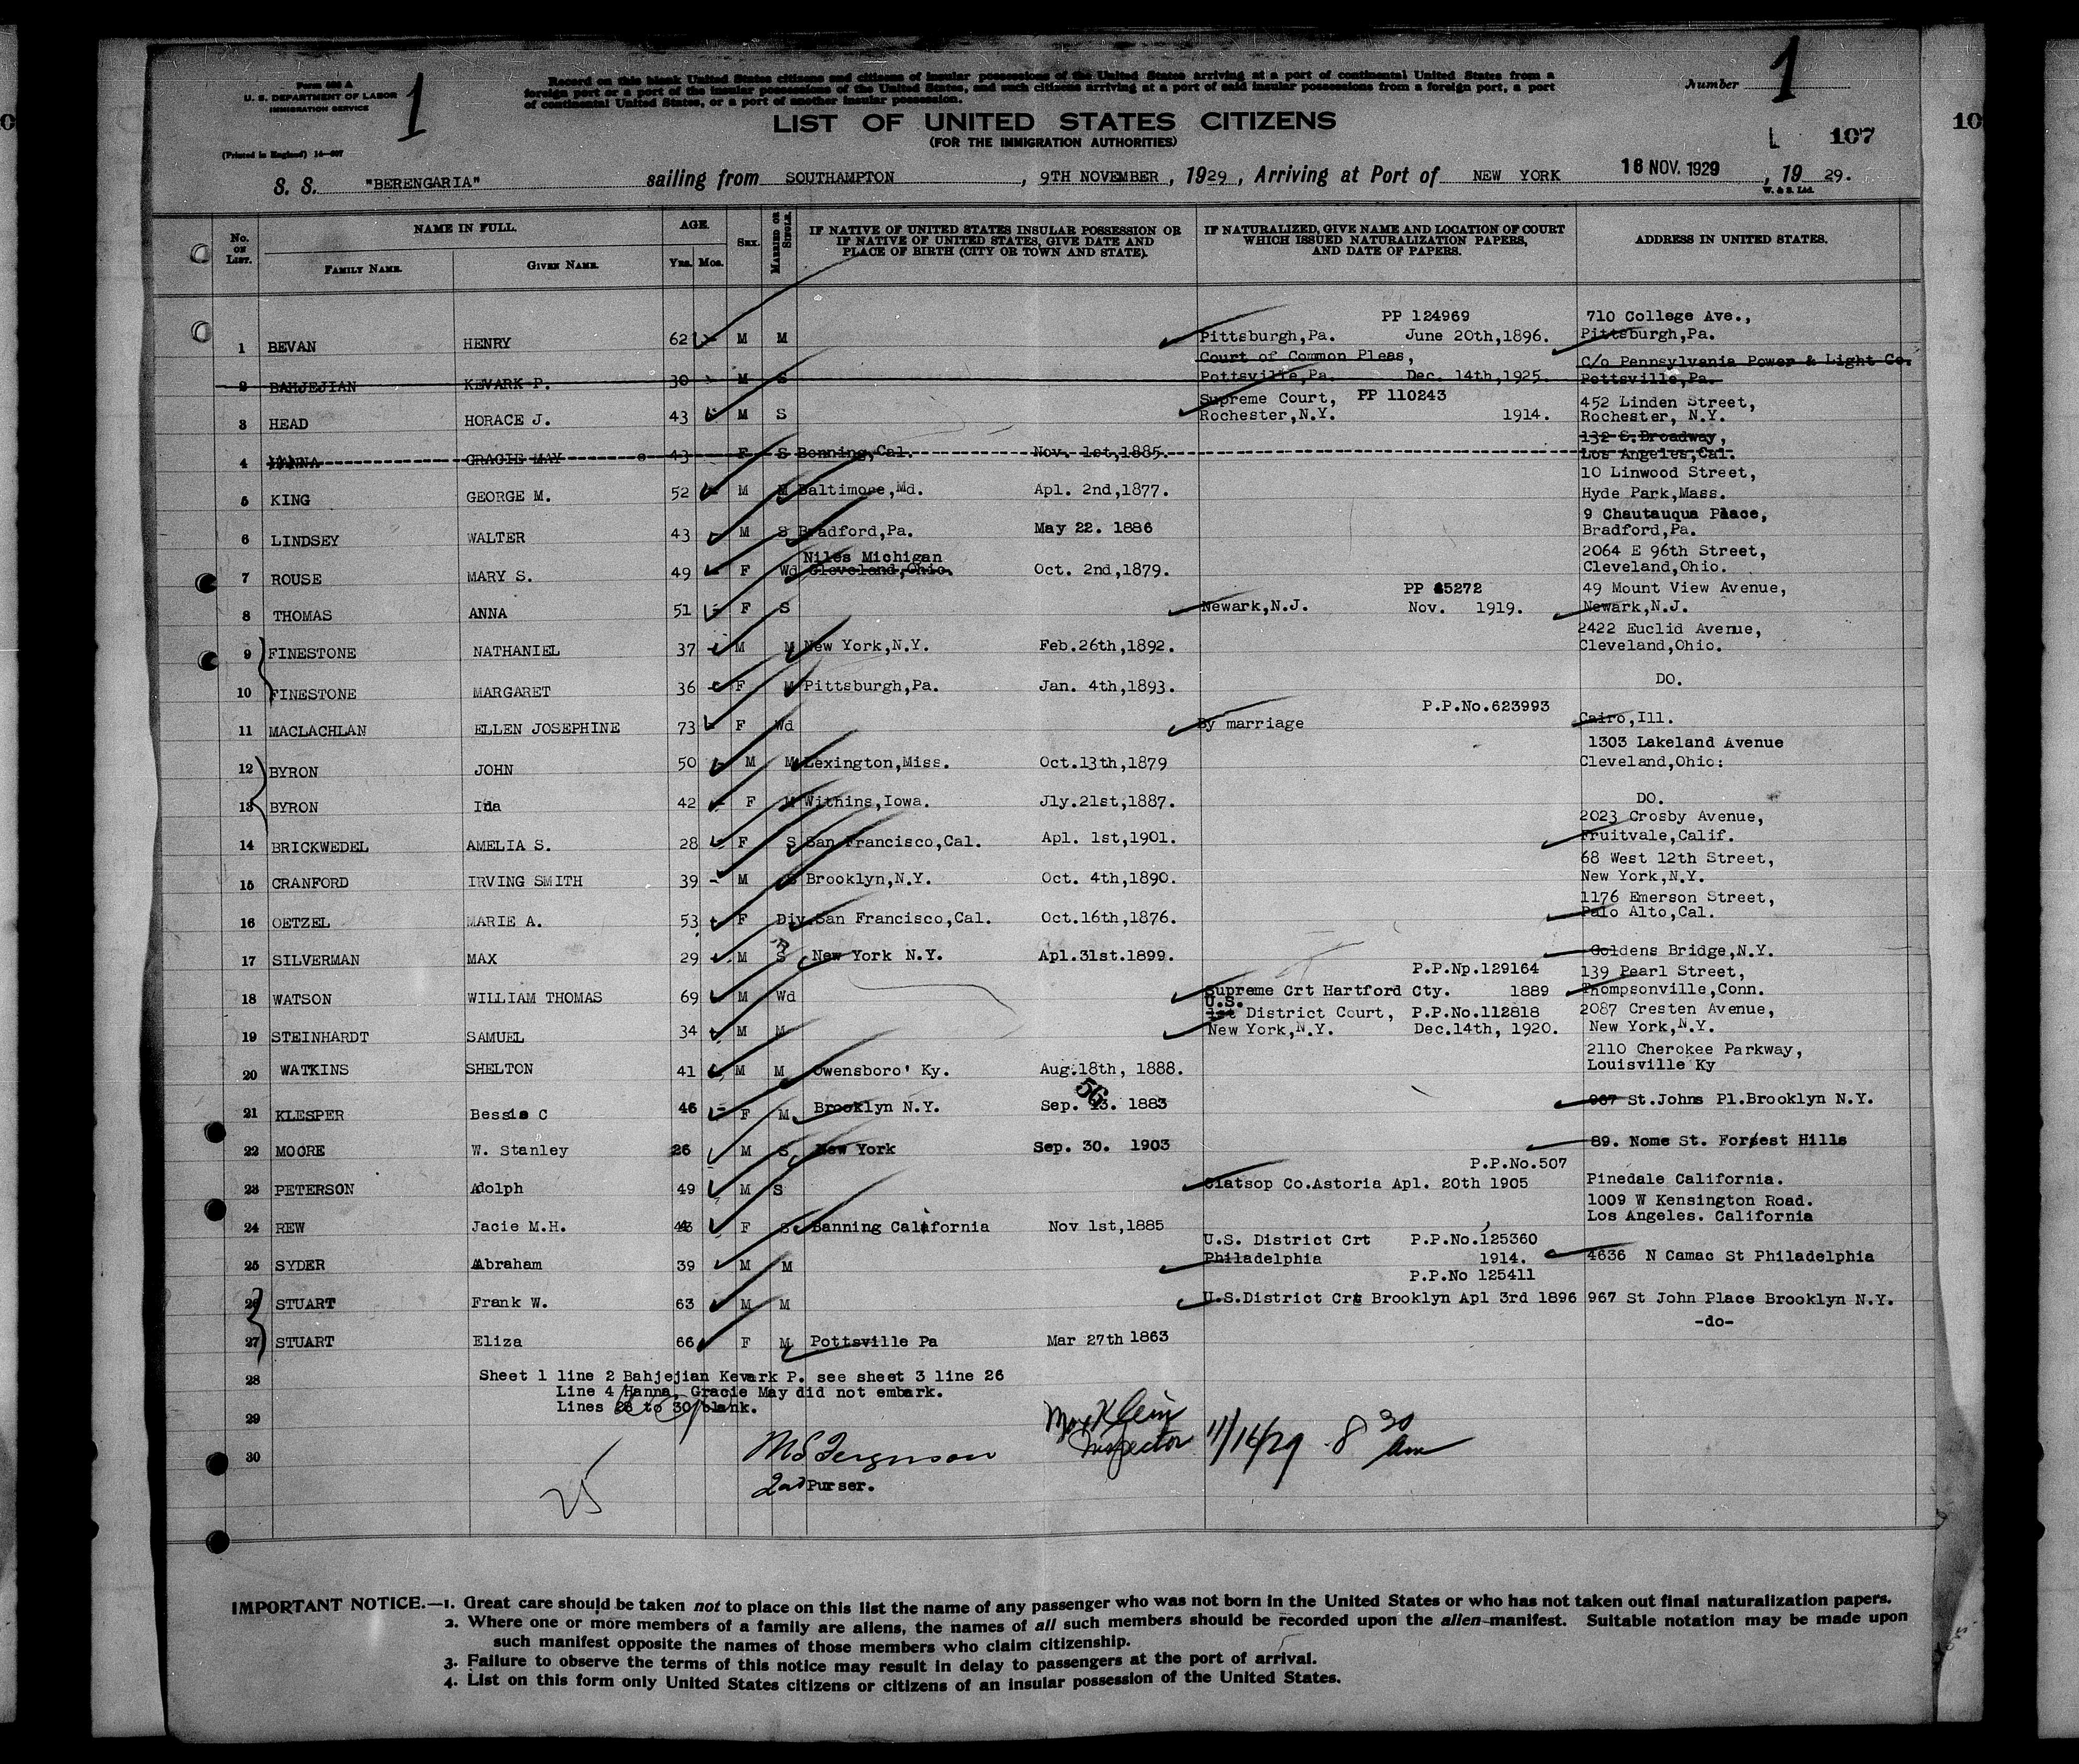 Form 630 A
U. S. DEPARTMENT OF LABOR
IMMIGRATION SERVICE
1
Record on this blank United States citizens and citizens of insular possessions of the United States arriving at a port of continental United States from a
foreign port or a port of the insular possessions of the United States, and such citizens arriving at a port of said insular possessions from a foreign port, a port
of continental United States, or a port of another insular possession.
Number 1
LIST OF UNITED STATES CITIZENS
(FOR THE IMMIGRATION AUTHORITIES)
L 107
10
(Printed in England) 14—607
S. S. "BERENGARIA" sailing from SOUTHAMPTON , 9TH NOVEMBER , 1929 , Arriving at Port of NEW YORK 16 NOV. 1929 , 19 29.
W. & S. Ltd.
No. ON LIST. NAME IN FULL. AGE. SEX. MARRIED OR SINGLE. IF NATIVE OF UNITED STATES INSULAR POSSESSION OR IF NATIVE OF UNITED STATES, GIVE DATE AND PLACE OF BIRTH (CITY OR TOWN AND STATE). IF NATURALIZED, GIVE NAME AND LOCATION OF COURT WHICH ISSUED NATURALIZATION PAPERS, AND DATE OF PAPERS. ADDRESS IN UNITED STATES.
FAMILY NAME. GIVEN NAME. Yrs. Mos.
PP 124969 710 College Ave.,
1 BEVAN HENRY 62 M M Pittsburgh,Pa. June 20th,1896. Pittsburgh,Pa.
Court of Common Pleas, C/o Pennsylvania Power & Light Co.
2 BAHJEJIAN KEVARK P. 30 M S Pottsville,Pa. Dec. 14th,1925. Pottsville,Pa.
Supreme Court, PP 110243 452 Linden Street,
3 HEAD HORACE J. 43 M S Rochester,N.Y. 1914. Rochester, N.Y.
132 S.Broadway,
4 HANNA GRACIE MAY 43 F S Benning,Cal. Nov. 1st,1885. Los Angeles,Cal.
10 Linwood Street,
5 KING GEORGE M. 52 M M Baltimore,Md. Apl. 2nd,1877. Hyde Park,Mass.
9 Chautauqua Place,
6 LINDSEY WALTER 43 M S Bradford,Pa. May 22. 1886 Bradford,Pa.
Niles Michigan 2064 E 96th Street,
7 ROUSE MARY S. 49 F Wd Cleveland,Ohio. Oct. 2nd,1879. Cleveland,Ohio.
PP 5272 49 Mount View Avenue,
8 THOMAS ANNA 51 F S Newark,N.J. Nov. 1919. Newark,N.J.
2422 Euclid Avenue,
9 FINESTONE NATHANIEL 37 M M New York,N.Y. Feb.26th,1892. Cleveland,Ohio.
10 FINESTONE MARGARET 36 F M Pittsburgh,Pa. Jan. 4th,1893. DO.
P.P.No.623993
11 MACLACHLAN ELLEN JOSEPHINE 73 F Wd By marriage Cairo,Ill.
1303 Lakeland Avenue
12 BYRON JOHN 50 M M Lexington,Miss. Oct.13th,1879 Cleveland,Ohio:
13 BYRON Ida 42 F M Withins,Iowa. Jly.21st,1887. DO.
2023 Crosby Avenue,
14 BRICKWEDEL AMELIA S. 28 F S San Francisco,Cal. Apl. 1st,1901. Fruitvale,Calif.
68 West 12th Street,
15 CRANFORD IRVING SMITH 39 M S Brooklyn,N.Y. Oct. 4th,1890. New York,N.Y.
1176 Emerson Street,
16 OETZEL MARIE A. 53 F Div. San Francisco,Cal. Oct.16th,1876. Palo Alto,Cal.
17 SILVERMAN MAX 29 M S New York N.Y. Apl.31st.1899. Goldens Bridge,N.Y.
P.P.Np.129164 139 Pearl Street,
18 WATSON WILLIAM THOMAS 69 M Wd Supreme Crt Hartford Cty. 1889 Thompsonville,Conn.
U.S.
1st District Court, P.P.No.112818 2087 Cresten Avenue,
19 STEINHARDT SAMUEL 34 M M New York,N.Y. Dec.14th, 1920. New York,N.Y.
2110 Cherokee Parkway,
20 WATKINS SHELTON 41 M M Owensboro' Ky. Aug.18th, 1888. Louisville Ky
56
21 KLESPER Bessie C 46 F M Brooklyn N.Y. Sep. 13. 1883 967 St.Johns Pl.Brooklyn N.Y.
22 MOORE W. Stanley 26 M S New York Sep. 30. 1903 89. Nome St. Forest Hills
P.P.No.507
23 PETERSON Adolph 49 M S Clatsop Co.Astoria Apl. 20th 1905 Pinedale California.
1009 W Kensington Road.
24 REW Jacie M.H. 43 F S Banning California Nov 1st,1885 Los Angeles. California
U.S. District Crt P.P.No.125360
25 SYDER Abraham 39 M M Philadelphia 1914. 4636 N Camac St Philadelphia
P.P.No 125411
26 STUART Frank W. 63 M M U.S.District Crt Brooklyn Apl 3rd 1896 967 St John Place Brooklyn N.Y.
-do-
27 STUART Eliza 66 F M Pottsville Pa Mar 27th 1863
28 Sheet 1 line 2 Bahjejian Kevark P. see sheet 3 line 26
Line 4 Hanna, Gracie May did not embark.
Lines 28 to 30 blank.
29
Max Klein
Inspector 11/16/29 8 30 am
30 M S Ferguson
2nd Purser.
25
IMPORTANT NOTICE.—1. Great care should be taken not to place on this list the name of any passenger who was not born in the United States or who has not taken out final naturalization papers.
2. Where one or more members of a family are aliens, the names of all such members should be recorded upon the alien-manifest. Suitable notation may be made upon
such manifest opposite the names of those members who claim citizenship.
3. Failure to observe the terms of this notice may result in delay to passengers at the port of arrival.
4. List on this form only United States citizens or citizens of an insular possession of the United States.